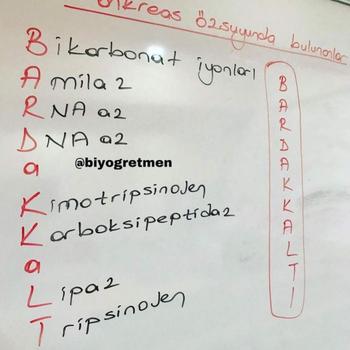 Pankreas Özsuyunda bulunanlar
Bikarbonat iyonları
Amilaz
RNA az
DNA az
a
@biyogretmen
Kimotripsinojen
Karboksipeptidaz
a
Lipaz
Tripsinojen
BARDAKKALTI